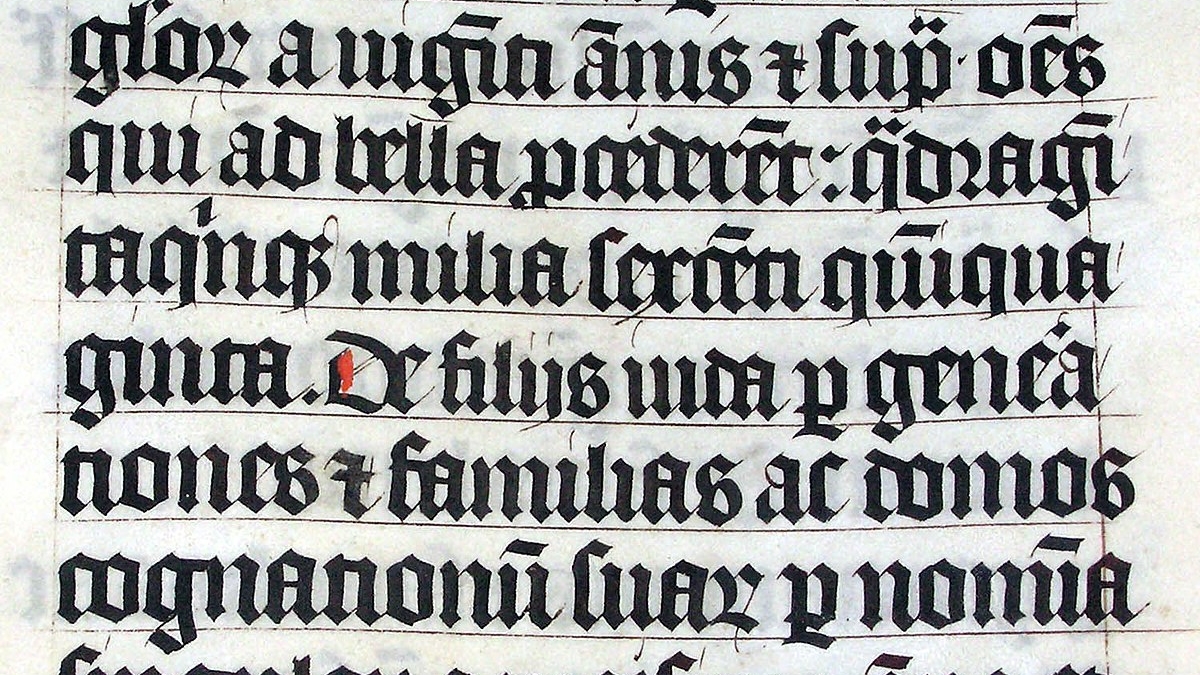 głoꝝ a uigīti ānis ⁊ sup̈· oēs
qui ad bella ꝓcederēt : q̈dragī
taqͥnqꝫ milia sexcēti quīqua
ginta. De filijs iuda ꝑ gen̾a
tiones ⁊ familias ac domos
cognationū suaꝝ ꝑ nomīa